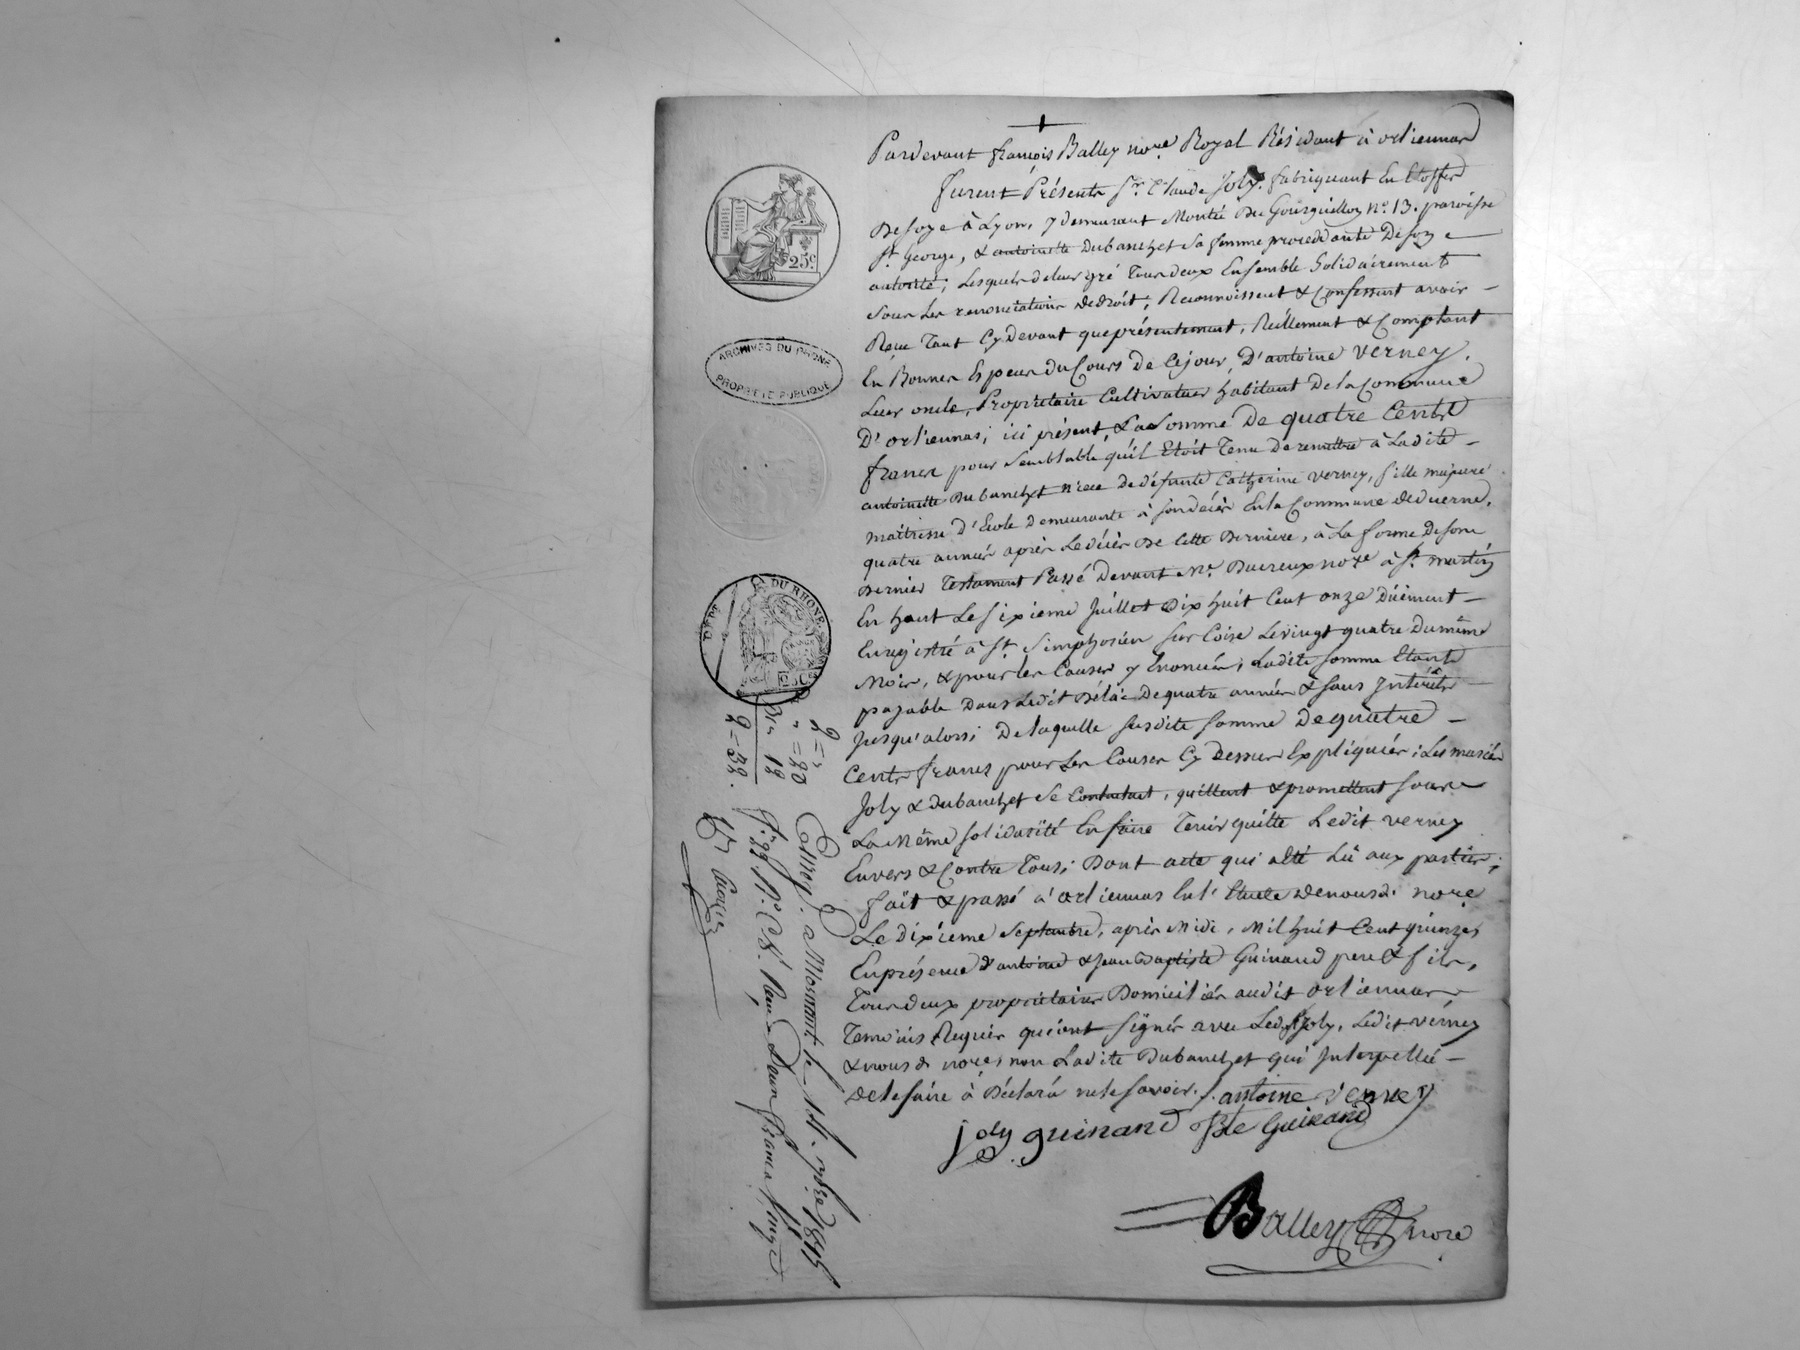 Pardevant françois Balley nore. Royal Résidant à orliennas
furent Présents Sr. Claude Joly. fabriquant En Etoffes
De soye à Lyon, y demeurant Montée Du Gourguillon no. 13. paroisse
St. George, & antoinette Dubanchet sa femme procédante De son
autorité; Lesquels de leur gré Tous deux Ensemble Solidairement
sous Les renonciations de droit, Reconnoissent & Confessent avoir
Reçu Tant Cy devant que présentement, Réellement & Comptant
En Bonnes Especes du Cours de Cejour, D'antoine verney,
Leur oncle, Propriétaire Cultivateur habitant De la Commune
D'orliennas; ici présent, La Somme De quatre Cents
francs pour semblable qu'il Etoit Tenu de remettre à Ladite
antoinette Dubanchet niece de défunte Catherine verney, fille majeure
maîtresse d'Ecole Demeurante à son décès En la Commune de duerne,
quatre années après Le décès De Cette Derniere, à La forme De son
Dernier Testament Passé Devant Me. nore à St. martin
En haut Le sixieme Juillet Dix huit Cent onze Dûement
Enregistré à St. Simphorien sur Coise Le vingt quatre Du même
Mois, & pour les Causes y Enoncées; Ladite somme Etante
payable Dans Ledit Délai De quatre années & sans Intérêts
jusqu'alors; De laquelle susdite somme De quatre
Cents francs pour Les Causes Cy Dessus Expliquées; Les mariés
Joly & dubanchet se Contentent, quittent & promettent sous
La Même solidarité En faire Tenir quitte Ledit verney
Envers & Contre Tous; Dont acte qui a Eté Lû aux parties;
fait & passé à orliennas En l'Etude de nousdt. nore
Le dixieme Septembre, après Midi, Mil huit Cent quinze,
En présence d'antoine & Jean Baptiste Guinand pere & fils,
Tous deux propriétaires Domiciliés audit orliennas,
Temoins Requis qui ont signés avec Ledt Joly, Ledit verney
& nousdt nore, non Ladite Dubanchet qui Interpellée
de le faire à Déclaré ne le savoir./.
antoine verney
joly guinand Bte Guinand
Balley nore
25 c
ARCHIVES DU RHONE
PROPRIÉTÉ PUBLIQUE
DÉPT. DU RHONE
25 C
2 =
" = 20
Sn 12
2 = 32.
Enreg. à Mornant le 7bre 1815
Reçu Deux francs vingt